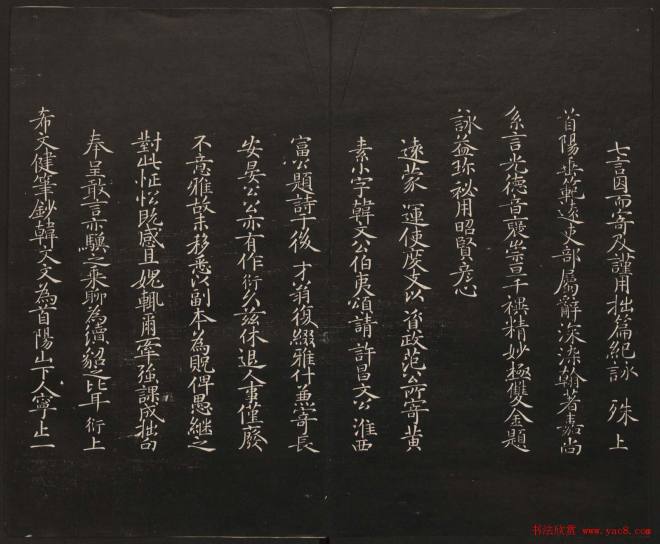 七言因而寄及謹用拙篇紀詠 殊上
首陽垂範遠吏部屬辭深染翰著嘉尚
系言光德音褒崇亘千禩精妙極雙金題
詠益珍祕用昭賢彥心
遠蒙 運使度支以資政范公所寄黃
素小字韓文公伯夷頌請 許昌文公 淮西
富公題詩于後 才翁復綴雅什兼寄長
安晏公公亦有作 衍久茲休退人事僅廢
不意雅故未移悉以副本為貺俾愚繼之
對此恇忪既感且媿輒爾牽強課成拙句
奉呈敢言亦驥之乘聊為續貂之比耳 衍上
希文健筆鈔韓文文為首陽山下人寧止一
书法欣赏 www.yac8.com